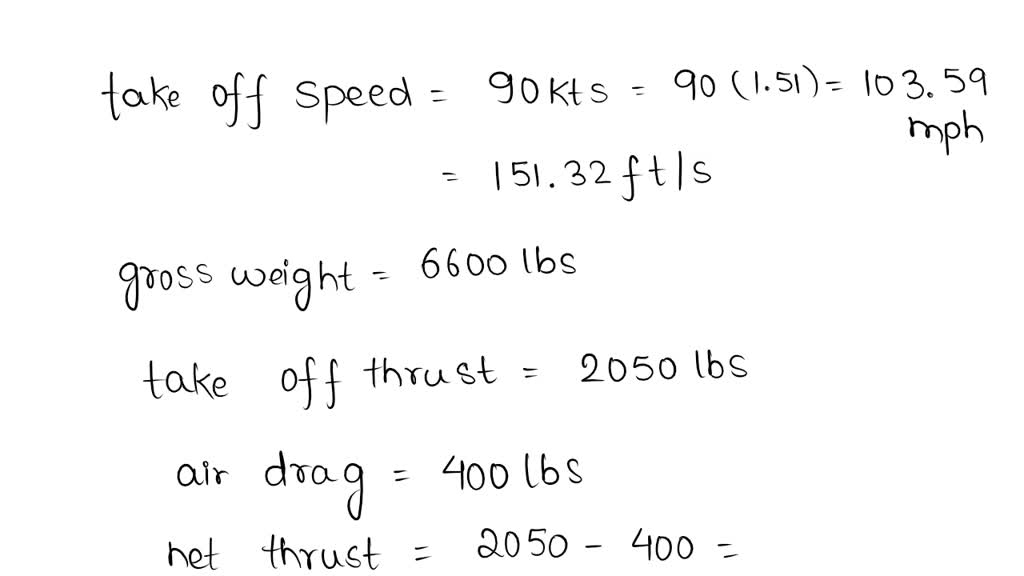 take off speed = 90kts = 90 (1.51) = 103.59 mph
= 151.32 ft/s
gross weight = 6600 lbs
take off thrust = 2050 lbs
air drag = 400 lbs
net thrust = 2050 - 400 =